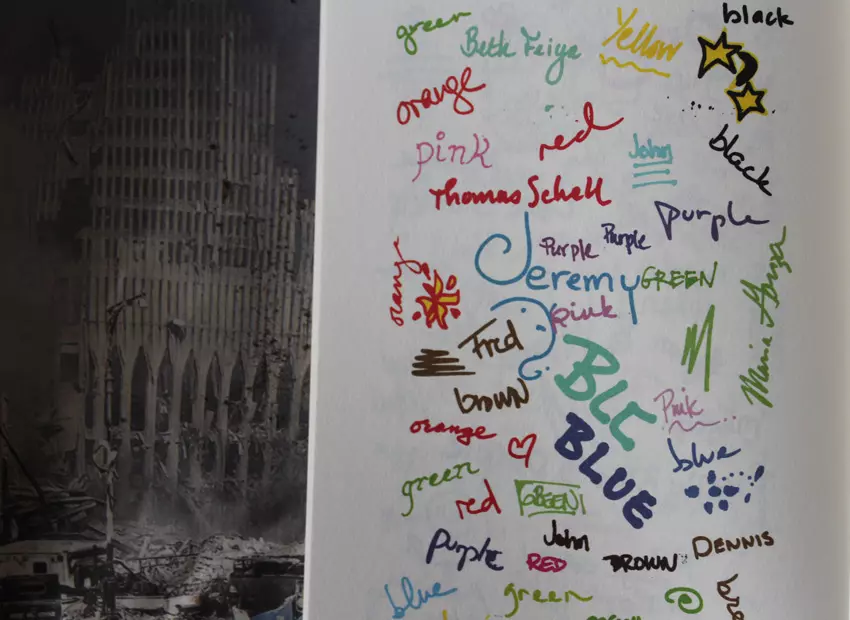 green
Beth Feige
Yellow
black
orange
pink
red
John
black
Thomas Schell
purple
Purple
Purple
orange
Jeremy
GREEN
pink
Fred
brown
BLC
Pink
orange
BLUE
blue
green
red
GREEN
Purple
John
RED
BROWN
DENNIS
blue
green